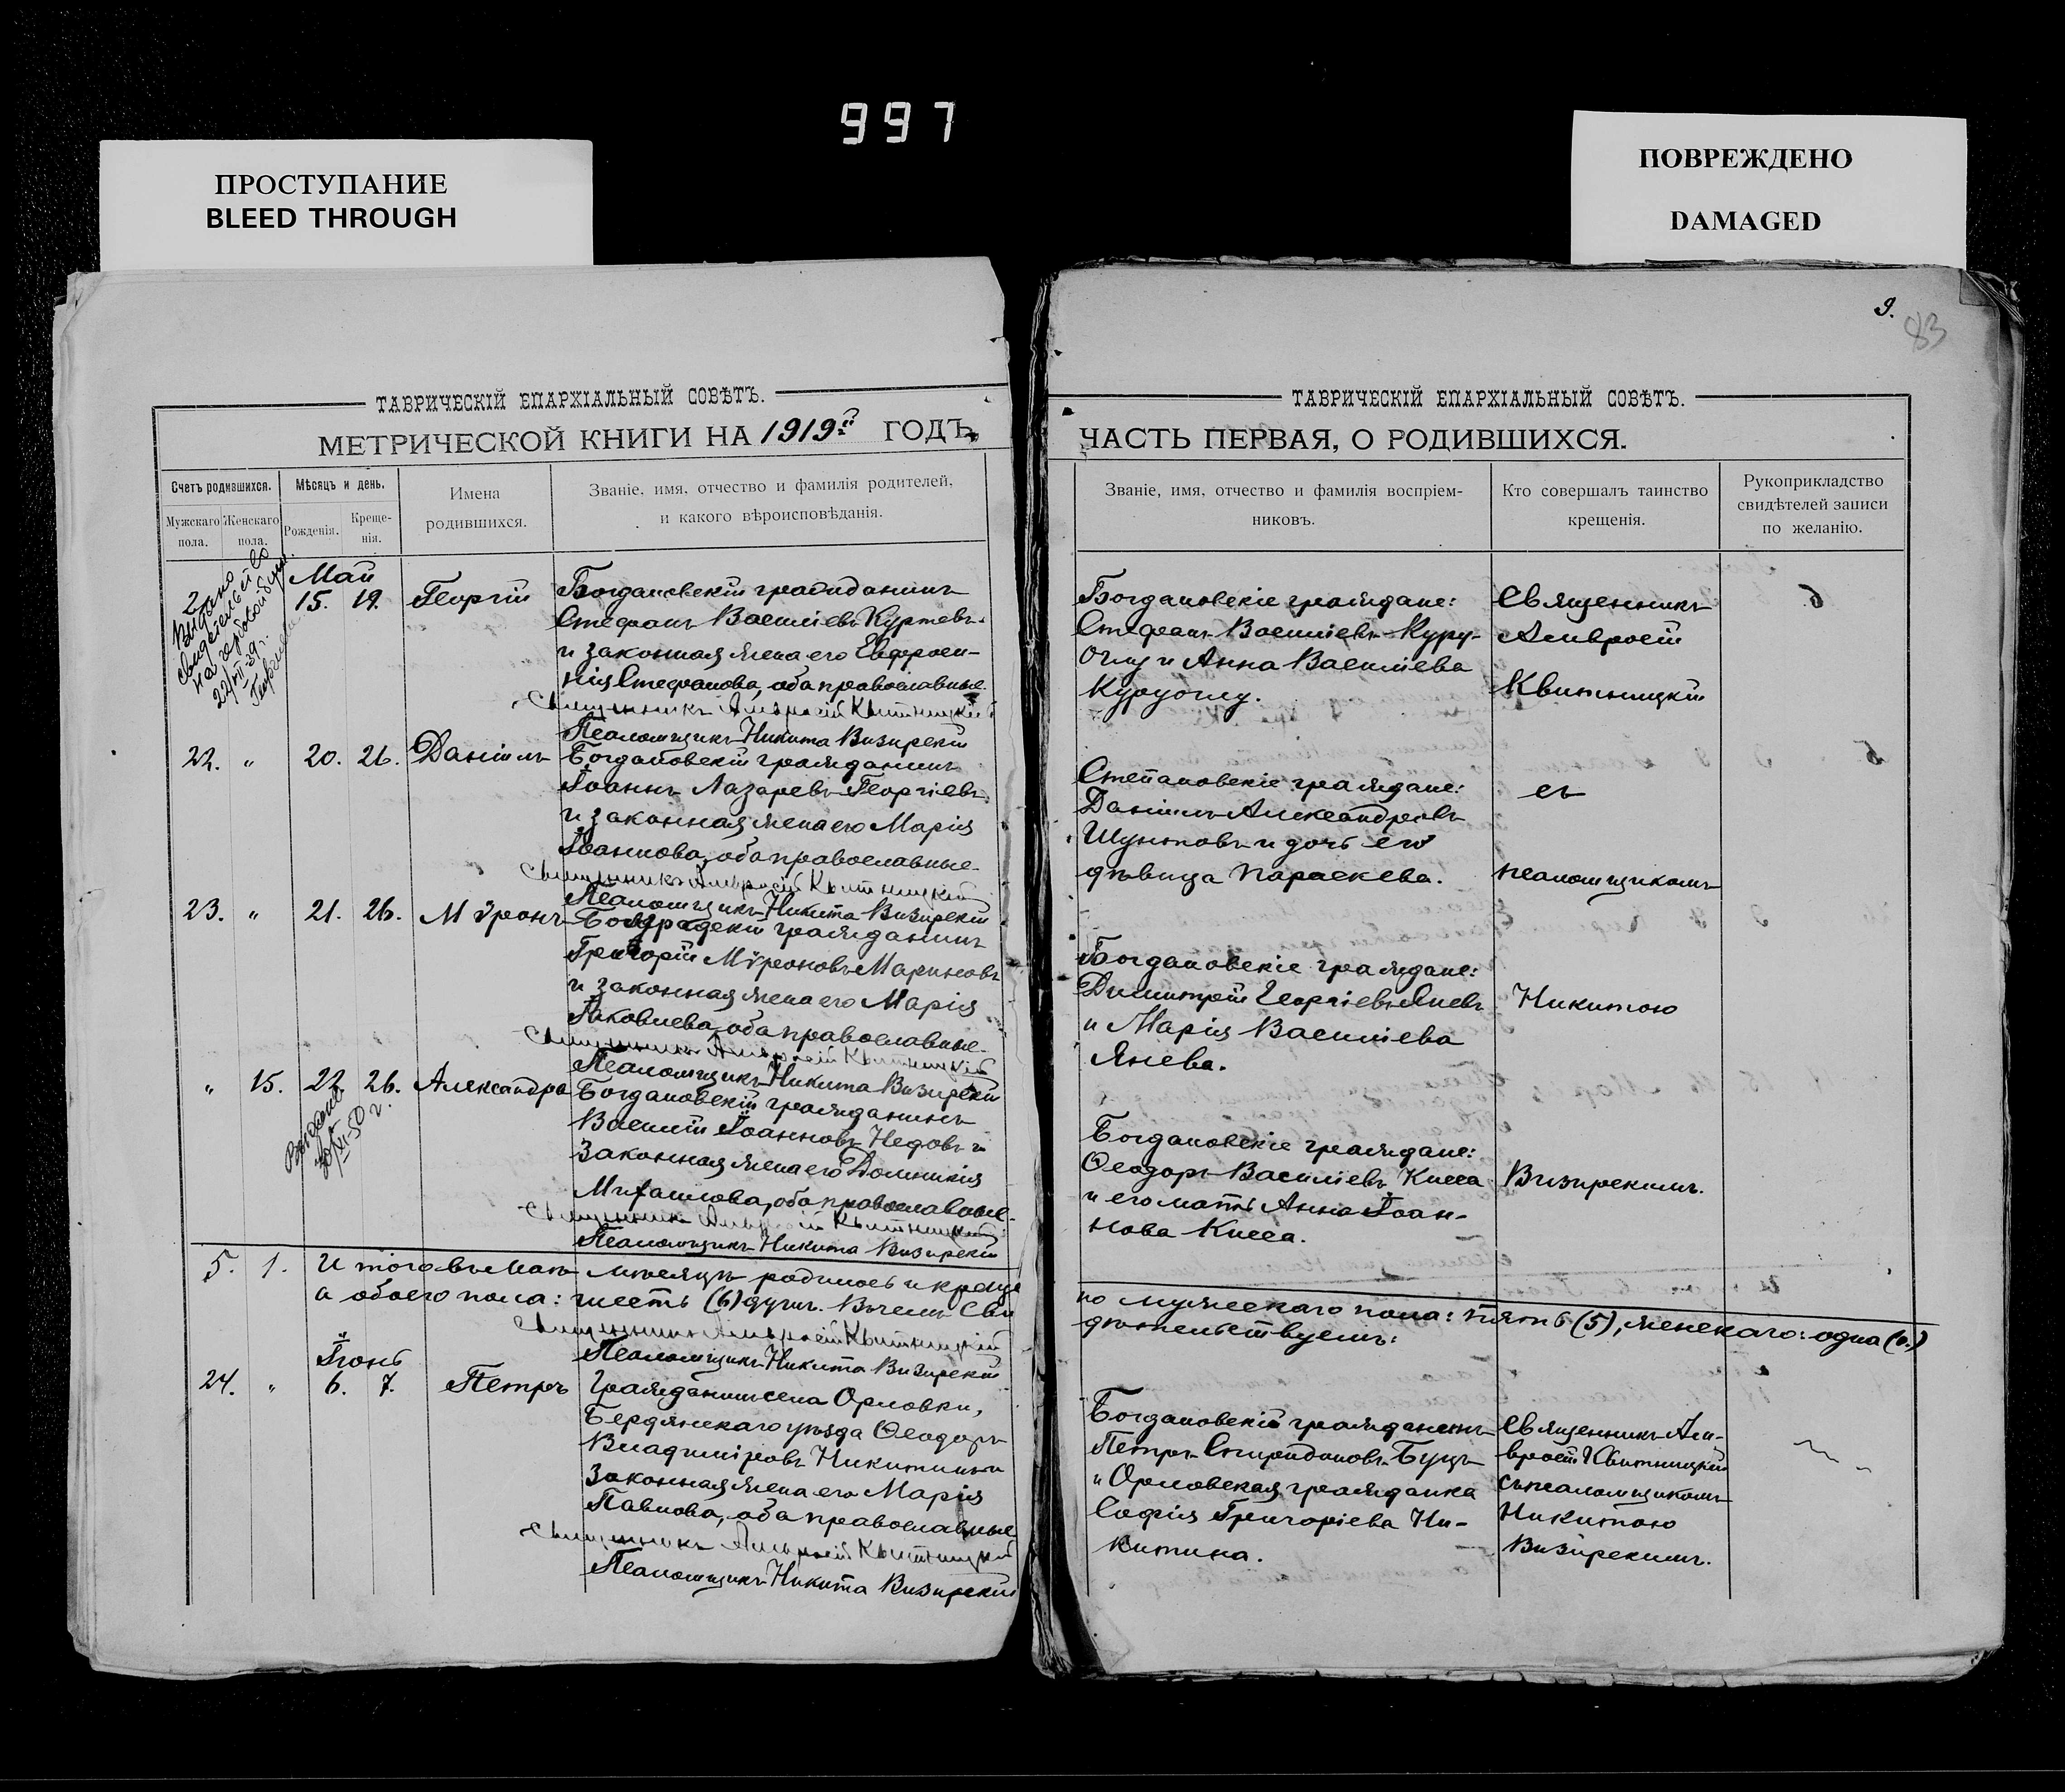 997
ПРОСТУПАНИЕ
BLEED THROUGH
ПОВРЕЖДЕНО
DAMAGED
9.
83
ТАВРИЧЕСКІЙ ЕПАРХІАЛЬНЫЙ СОВѢТЪ.
МЕТРИЧЕСКОЙ КНИГИ НА 1919й ГОДЪ,
Счетъ родившихся.
Мужскаго пола.
Женскаго пола.
Мѣсяцъ и день.
Рожденія.
Креще-
нія.
Имена
родившихся.
Званіе, имя, отчество и фамилія родителей,
и какого вѣроисповѣданія.
Выдано
свидетельство
на гербовой бум.
22/VII-39 г.
Май
15. 19. Георгій Богдановскій гражданинъ
Стефанъ Васильевъ Куртевъ
и законная жена его Евфроси-
нія Стефанова, оба православные.
Священникъ Амвросій Квитницкій
Псаломщикъ Никита Визирскій
22. " 20. 26. Даніилъ Богдановскій гражданинъ
Іоаннъ Лазаревъ Георгіевъ
и законная жена его Марія
Іоаннова, оба православные.
Священникъ Амвросій Квитницкій
Псаломщикъ Никита Визирскій
23. " 21. 26. Мѵронъ Болградскій гражданинъ
Григорій Мѵроновъ Мариновъ
и законная жена его Марія
Іаковлева, оба православные.
Священникъ Амвросій Квитницкій
Псаломщикъ Никита Визирскій
" 15. 22. 26. Александра Богдановскій гражданинъ
Василій Іоанновъ Недовъ и
законная жена его Домникія
Михаилова, оба православные.
Священникъ Амвросій Квитницкій
Псаломщикъ Никита Визирскій
30/VI-50 г.
5. 1. Итого въ Маѣ мѣсяцѣ родилось и креще
а обоего пола: шесть (6) душъ. Въ чемъ сви
Священникъ Амвросій Квитницкій
Псаломщикъ Никита Визирскій
Іюнь
24. " 6. 7. Петръ Гражданинъ села Орловки,
Бердянскаго уѣзда Ѳеодоръ
Владиміровъ Никитинъ и
законная жена его Марія
Павлова, оба православные
Священникъ Амвросій Квитницкій
Псаломщикъ Никита Визирскій
ТАВРИЧЕСКІЙ ЕПАРХІАЛЬНЫЙ СОВѢТЪ.
ЧАСТЬ ПЕРВАЯ, О РОДИВШИХСЯ.
Званіе, имя, отчество и фамилія воспріем-
никовъ.
Кто совершалъ таинство
крещенія.
Рукоприкладство
свидѣтелей записи
по желанію.
Богдановскіе граждане: Священникъ
Стефанъ Васильевъ Куру- Амвросій
оглу и Анна Васильева
Куруоглу. Квитницкій
Степановскіе граждане: съ
Даніилъ Александровъ
Шунтовъ и дочь его
дѣвица Параскева. псаломщикомъ
Богдановскіе граждане:
Димитрій Георгіевъ Яневъ Никитою
и Марія Васильева
Янева.
Богдановскіе граждане:
Ѳеодоръ Васильевъ Кисса Визирскимъ.
и его мать Анна Іоан-
нова Кисса.
но мужескаго пола: пять (5), женскаго: одна (1.)
дѣтельствуемъ:
Богдановскій гражданинъ Священникъ Ам-
Петръ Спиридоновъ Буцъ вросій Квитницкій
и Орловская гражданка съ псаломщикомъ
Софія Григоріева Ни- Никитою
китина. Визирскимъ.